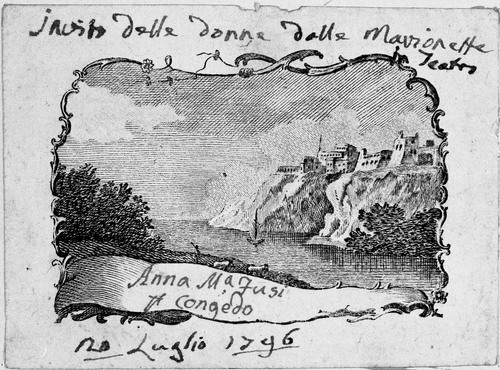 Invito delle donne dalle Marionette
in Teatro
Anna Magusi
Pr Congedo
20 Luglio 1796